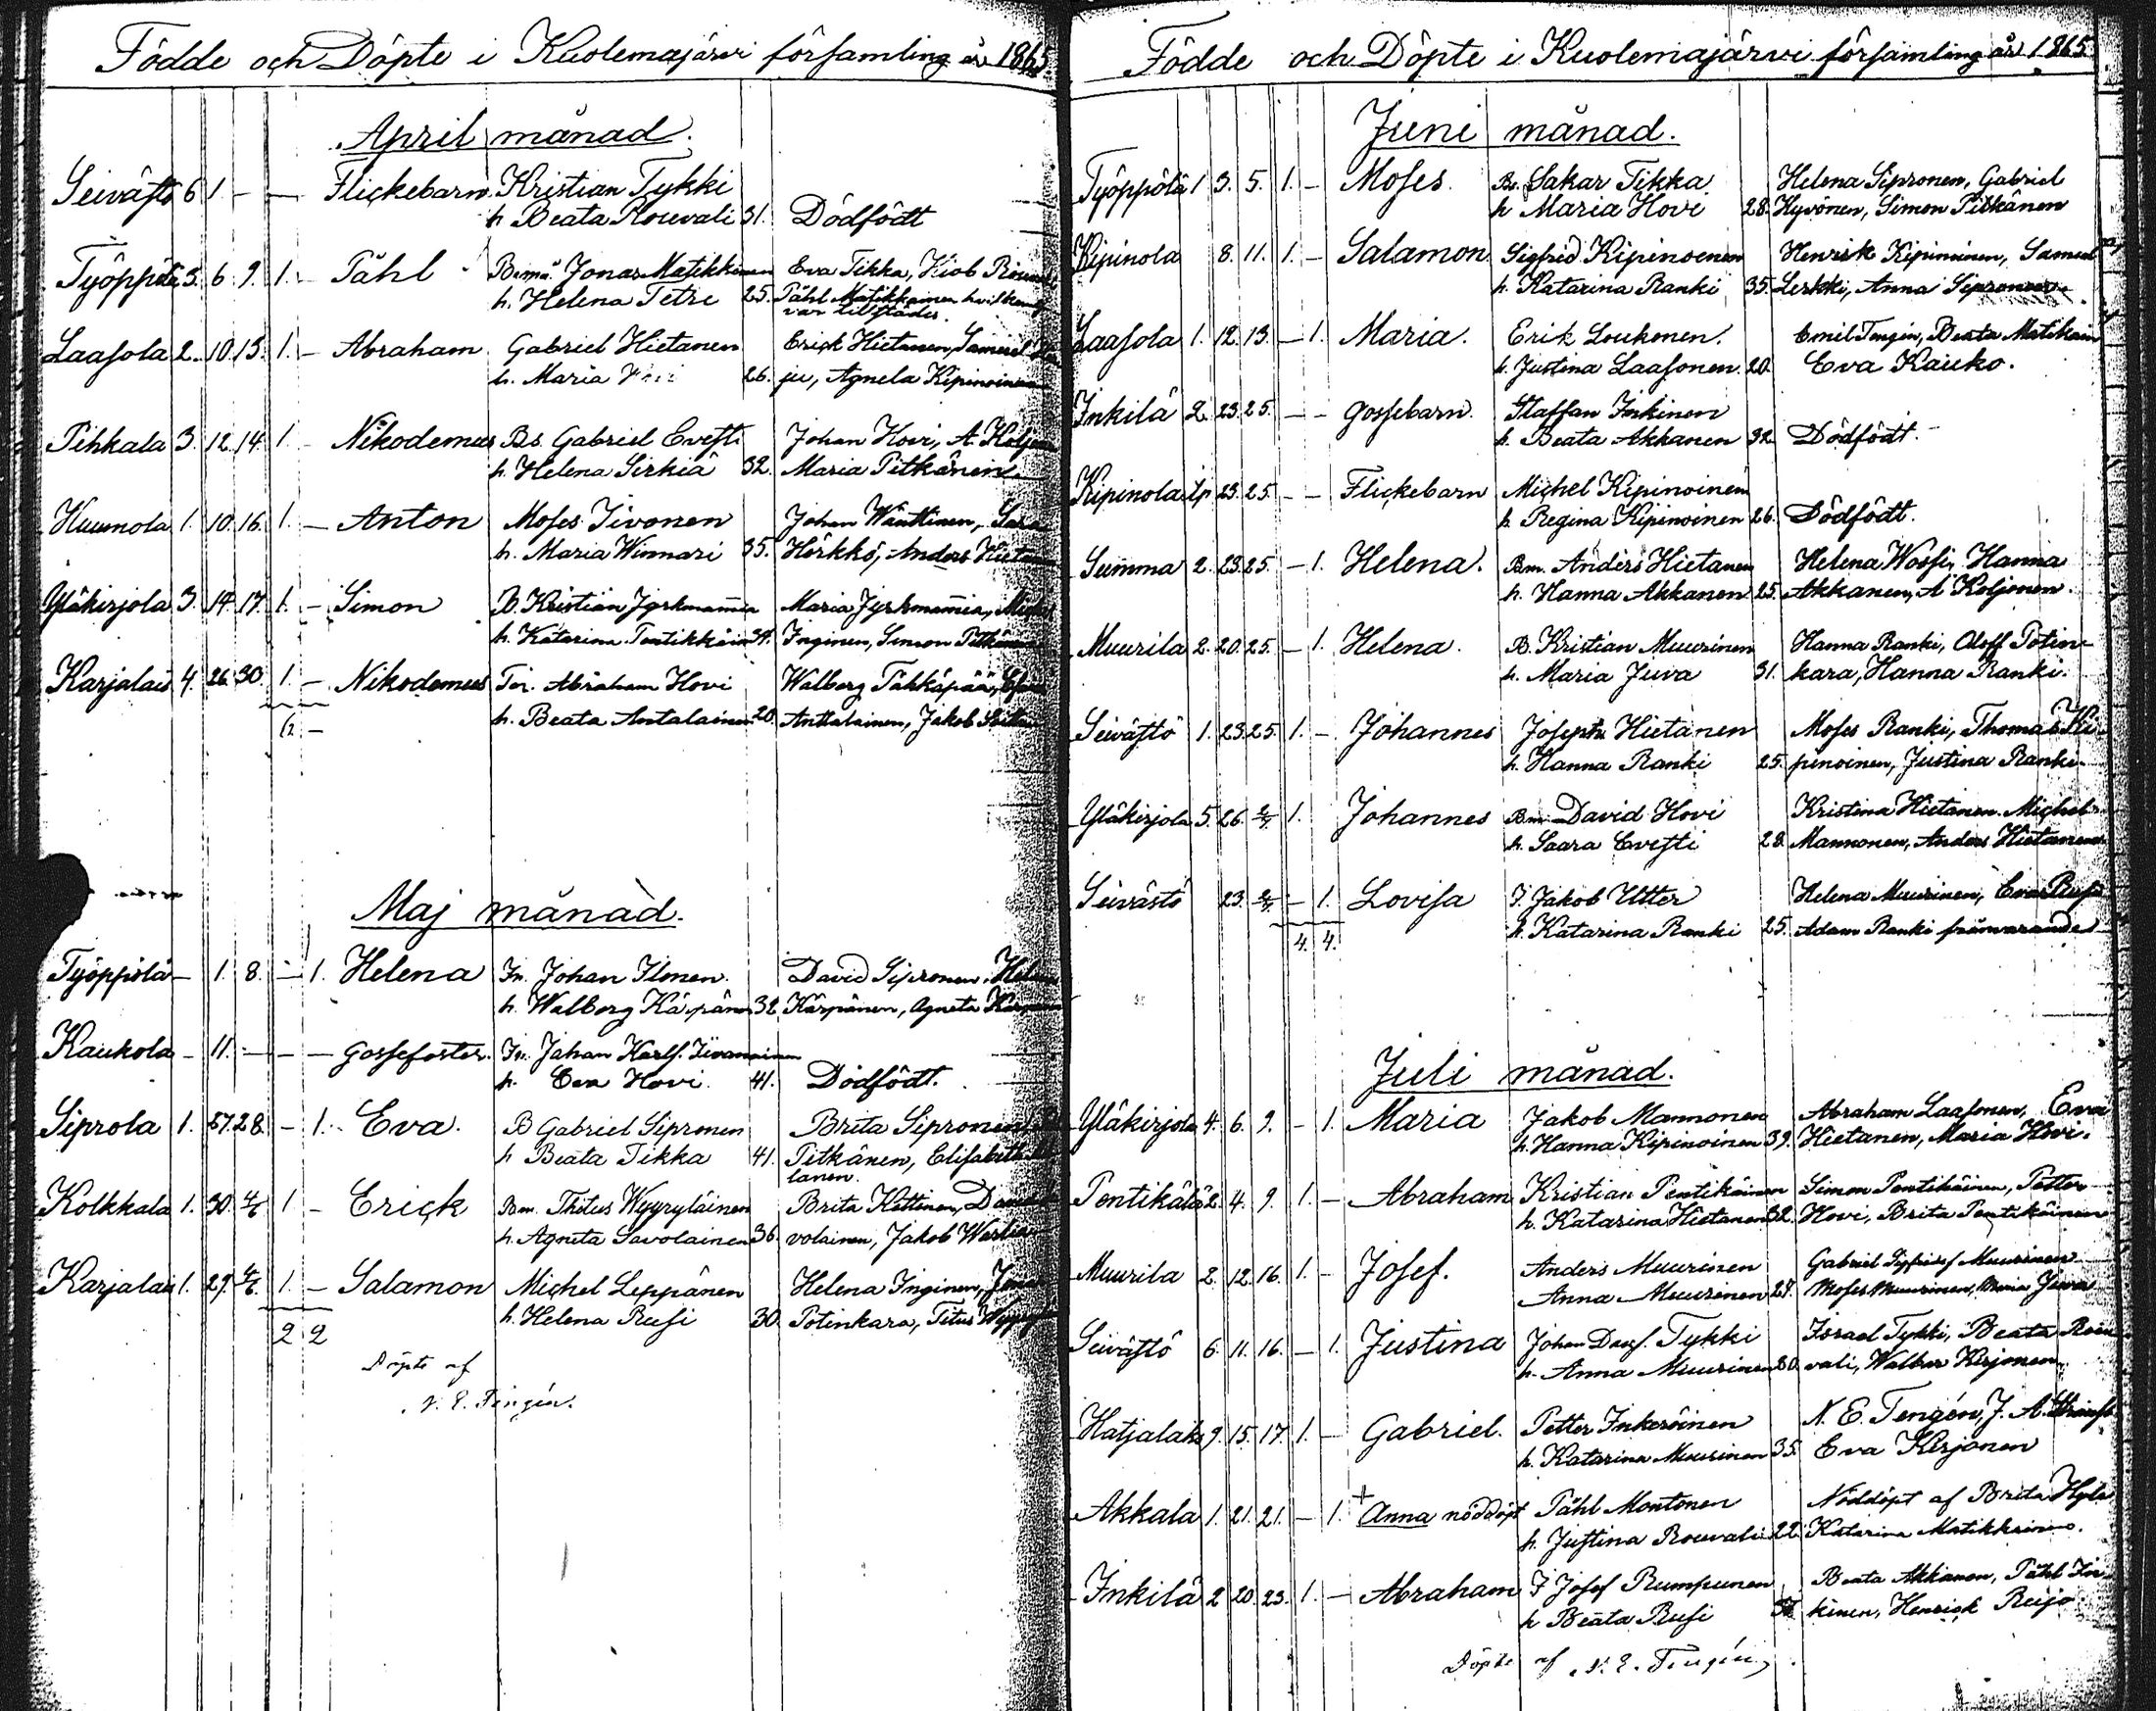 Födde och Döpte i Kuolemajärvi församling år 1865
April månad.
Seivästö 6 1 - - Flickebarn Kristian Tykki
h. Beata Rouvali 31. Dödfödt
Työppölä 3. 6. 9. 1. - Påhl Jonas Matikkainen Eva Tikka,
h. Helena Petri 25. Påhl Matikkainen
var tillstädes.
Laasola 2. 10. 13. 1. - Abraham Gabriel Hietanen Erick Hietanen, Samuel
h. Maria 26. ju, Agneta Kipinoinen
Pihkala 3. 12. 14. 1. Nikodemus Bs. Gabriel Evesti Johan Hovi, A. Koljonen
h. Helena Sirkiä 32. Maria Pitkänen.
Kuunola 1. 10. 16. 1. - Anton Moses Iivonen Johan Wänttinen, Sara
h. Maria Winnari 35. Hörkkö, Anders Hietanen
Yläkirjola 3. 14. 17. 1. - Simon B. Kristian Jyrkinammia Maria Jyrkinammia,
h. Katarina Pentikkäin 34. Inginen, Simon Pitkänen
Karjalais 4. 26. 30. 1. - Nikodemus Tor. Abraham Hovi Walborg Tähkäpää,
h. Beata Antalainen 20. Anttalainen, Jakob
6 -
Maj månad.
Työppölä - 1. 8. - 1. Helena In. Johan Ilonen. David Sipronen, Helena
h. Walborg Kärpänen 32 Kärpänen, Agneta Kärpänen
Kaukola - 11. - - - gossefoster. In. Johan Karls.
h. Eva Hovi 41. Dödfödt.
Siprola 1. 27. 28. - 1. Eva. B Gabriel Sipronen Brita Sipronen
h Beata Tikka 41. Pitkänen, Elisabeth
tanen.
Kolkkala 1. 30. 4/6 1 - Erick Bm. Thitus Wyyryläinen Brita Kettinen,
h. Agneta Savolainen 36. volainen, Jakob
Karjalais 1. 29. 4/6. 1 - Salamon Michel Leppänen Helena Inginen,
h. Helena Rusi 30. Potinkara, Titus
2 2
Döpte af
N. E. Tengén.
Födde och Döpte i Kuolemajärvi församling år 1865
Juni månad.
Työppölä 1 3. 5. 1. - Moses. Bs. Sakar Tikka. Helena Sipronen, Gabriel
h Maria Hovi 28. Hyvönen, Simon Pitkänen
Kipinola 8. 11. 1. - Salamon. Sigfrid Kipinoenen Henrik Kipinoinen, Samuel
h. Katarina Ranki 35. Lerkki, Anna Sipronen
Laasola 1. 12. 13. - 1. Maria. Erik Loukonen. Emil Tengén, Beata Matikain
h. Justina Laasonen. 20. Eva Kauko.
Inkilä 2. 23. 25. - - gossebarn. Staffan Inkinen
h. Beata Akkanen 32 Dödfödt.
Kipinola 23. 25. - - Flickebarn Michel Kipinoinen
h. Regina Kipinoinen 26. Dödfödt.
Summa 2. 23. 25. - 1. Helena. Bm. Anders Hietanen Helena Hanna
h. Hanna Akkanen 25. Akkanen, A Koljonen.
Muurila 2. 20. 25. - 1. Helena. B. Kristian Muurinen Hanna Ranki, Oloff Potin-
h. Maria Juva 31. kara, Hanna Ranki.
Seivästö 1. 23. 25. 1. - Johannes Joseph Hietanen Moses Ranki, Thomas Ki-
h. Hanna Ranki 25. pinoinen, Justina Ranki
Yläkirjola 5. 26. 2/7. 1. Johannes Bm. David Hovi Kristina Hietanen. Michel
h. Saara Evesti 28. Mannonen, Anders Hietanen
Seivästö 23. 2/7. - 1. Lovisa I. Jakob Utter Helena Muurinen, Eva Rusi
h. Katarina Ranki 25. Adam Ranki frånvarande
4. 4.
Juli månad.
Yläkirjola 4. 6. 9. - 1. Maria Jakob Mannonen Abraham Laasonen, Eva
h. Hanna Kipinoinen 39. Hietanen, Maria Hovi.
Pentikälä 2. 4. 9. 1. - Abraham Kristian Pentikäinen Simon Pentikäinen, Petter
h. Katarina Hietanen 32. Hovi, Brita Pentikäinen
Muurila 2. 12. 16. 1. - Josef. Anders Muurinen Gabriel Sigfridsf Muurinen
Anna Muurinen 27. Moses Muurinen, Maria Juva
Seivästö 6. 11. 16. - 1. Justina Johan Davs. Tykki Israel Tykki, Beata Rou-
h. Anna Muurinen 30. vali, Walbor Kirjonen.
Hatjalaks 9. 15. 17. 1. - Gabriel. Petter Inkeröinen N. E. Tengén, J. A.
h. Katarina Muurinen 35. Eva Kirjonen
Akkala 1. 21. 21. - 1. + Anna nöddöpt Påhl Montonen Nöddöpt af Brita
h. Justina Rouvali 22. Katarina Matikkainen.
Inkilä 2 20. 23. 1. - Abraham I Josef Rumpunen Beata Akkanen, Påhl In-
h Beata Rusi kinen, Henrick Reijo
Döpte af N. E. Tengén,